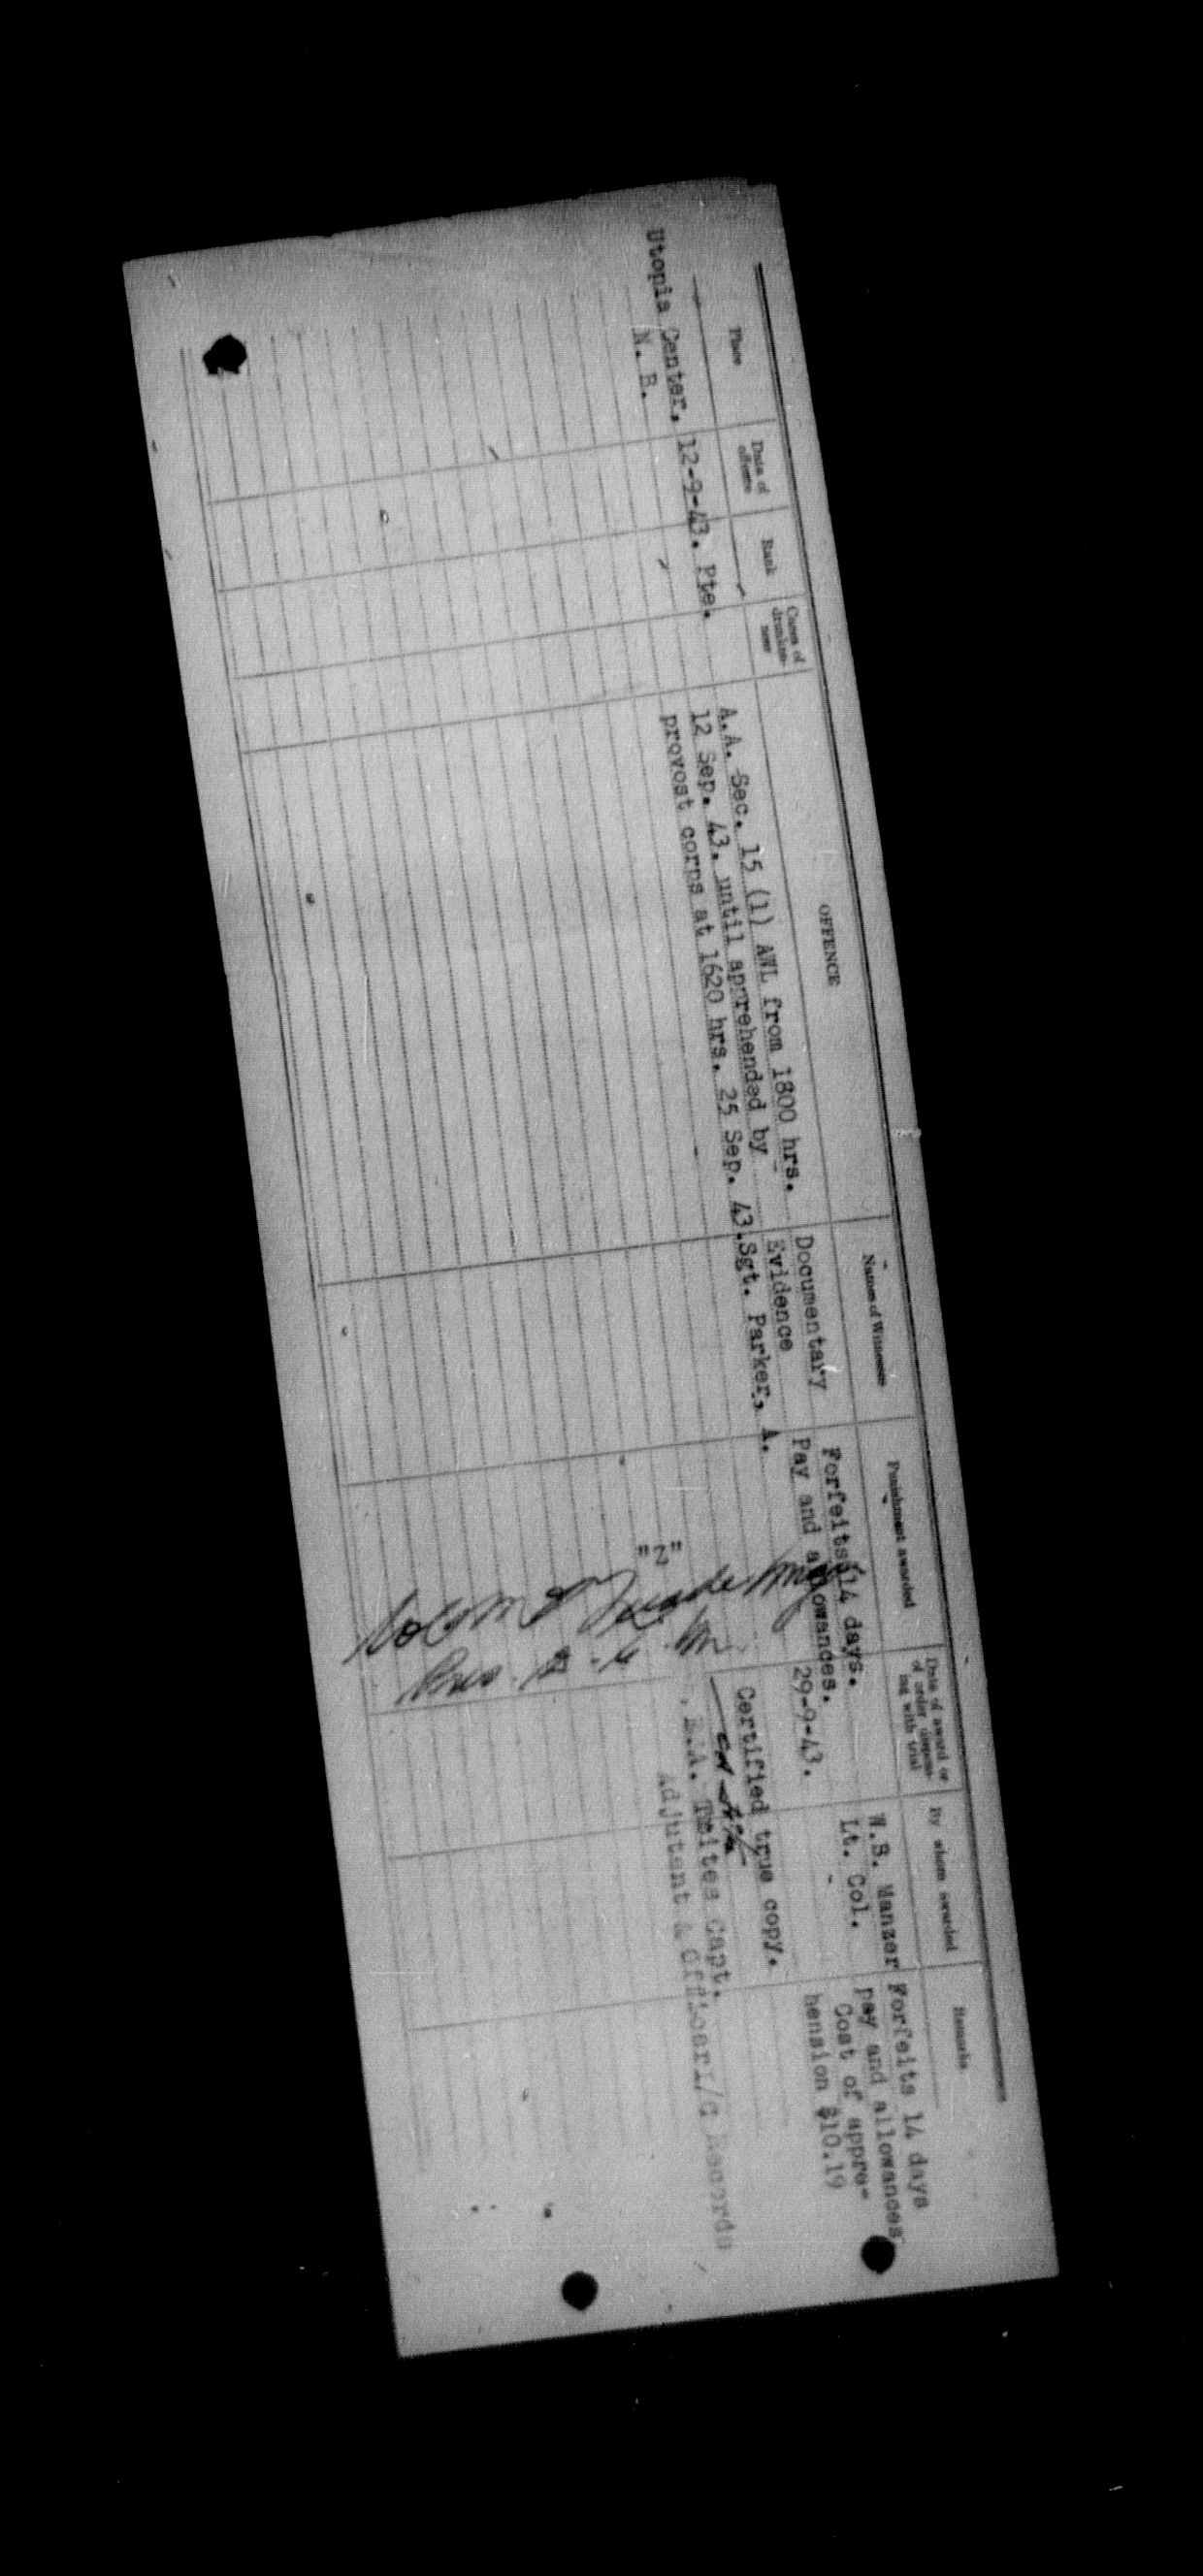 Place
Date of
offence
Rank
Cases of
drunken-
ness
OFFENCE
Names of Witnesses
Punishment awarded
Date of award or
of order dispens-
ing with trial
By whom awarded
Remarks
Utopia Center,
N. B.
12-9-43.
Pte.
A.A. Sec. 15 (1) AWL from 1800 hrs.
12 Sep. 43. until apprehended by
provost corps at 1620 hrs. 25 Sep. 43.
Documentary
Evidence
Sgt. Parker, A.
Forfeits 14 days.
Pay and allowances.
29-9-43.
W.B. Manzer
Lt. Col.
Forfeits 14 days
pay and allowances
Cost of appre-
hension $10.19
"Z"
Certified true copy.
Capt.
Adjutant & Officer i/c Records